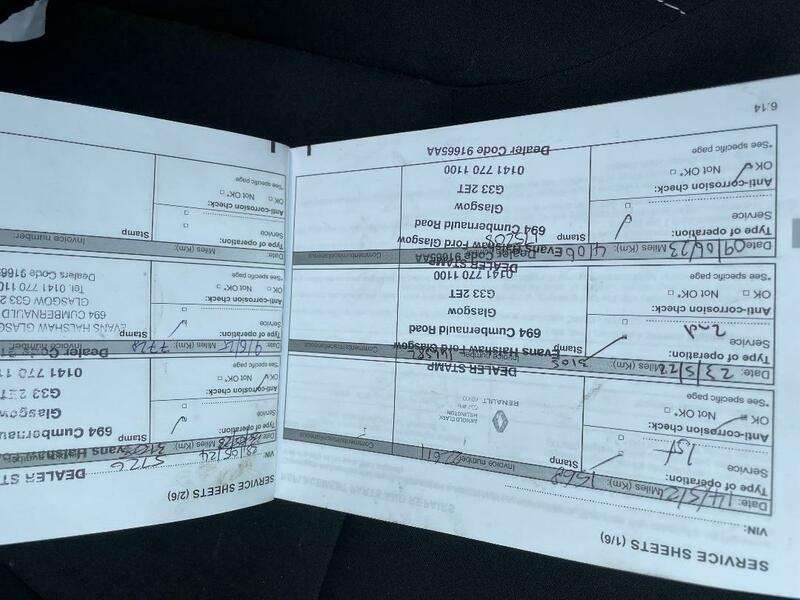 SERVICE SHEETS (1/6)
VIN:
Date: 14/5/21 Miles (Km): 1568 Invoice number:
Type of operation:
Service
1st
Stamp
Anti-corrosion check:
OK Not OK*
*See specific page
RENAULT
DEALER STAMP
Date: 23/5/22 Miles (Km): 3105
Type of operation:
Service
2nd
Stamp
Evans Halshaw Ford Glasgow
694 Cumbernauld Road
Glasgow
G33 2ET
0141 770 1100
Anti-corrosion check:
OK Not OK*
*See specific page
DEALER STAMP
Date: 09/06/23 Miles (Km): 4406
Type of operation:
Service
Stamp
Evans Halshaw Ford Glasgow
694 Cumbernauld Road
Glasgow
G33 2ET
0141 770 1100
Dealer Code 91665AA
Anti-corrosion check:
OK Not OK*
*See specific page
6.14
SERVICE SHEETS (2/6)
VIN:
DEALER ST
5726
Type of operation:
Service
Stamp
Evans Halshaw
694 Cumbernau
Glasgow
G33 2E
0141 770 1
Dealer Co
Anti-corrosion check:
OK Not OK*
*See specific page
Date: 9/5/25 Miles (Km): 7728 Invoice number:
Type of operation:
Service
Stamp
EVANS HALSHAW GLASG
694 CUMBERNAULD
GLASGOW G33 2
Tel: 0141 770 110
Dealers Code 9166
Anti-corrosion check:
OK Not OK*
*See specific page
Date: Miles (Km): Invoice number:
Type of operation:
Service
Stamp
Anti-corrosion check:
OK Not OK*
*See specific page